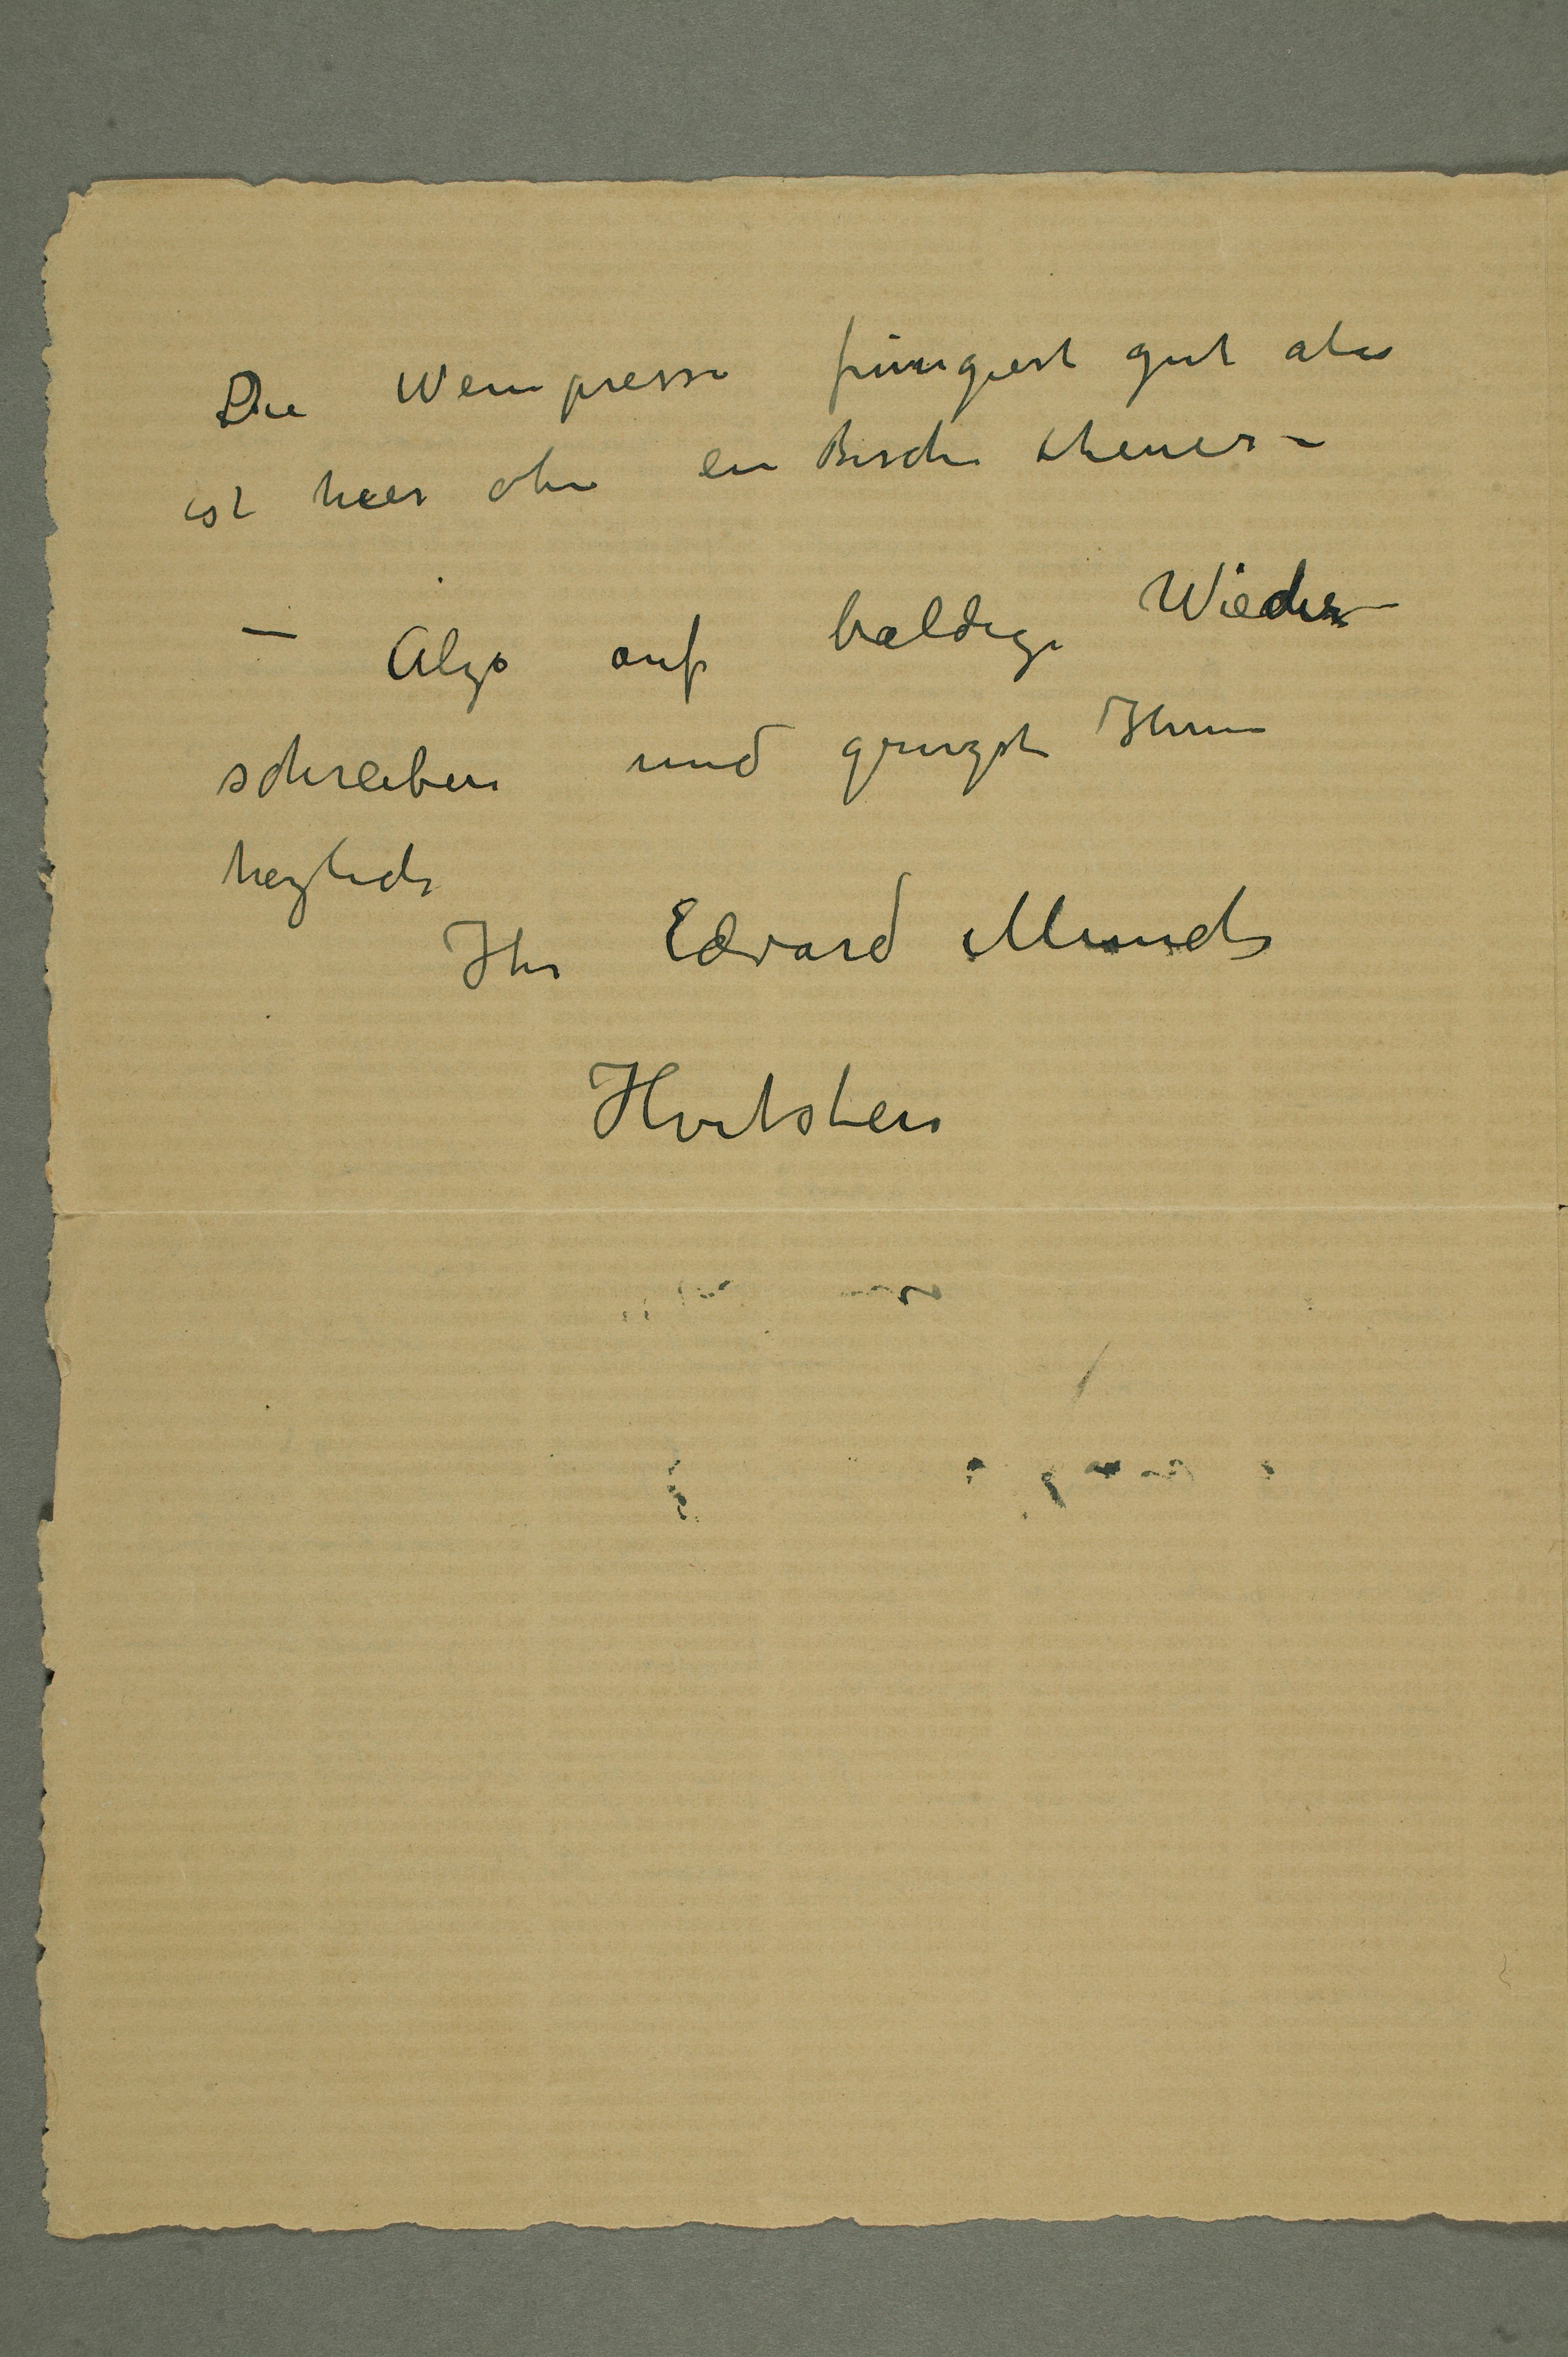 Die Weinpresse fungiert gut aber
ist hier ohne ein Bischen theuer –
– Algo auf baldige Wieder–
schreiben und grüzst Ihnen
hezlich
Ihr Edvard Munch
Hvitsten